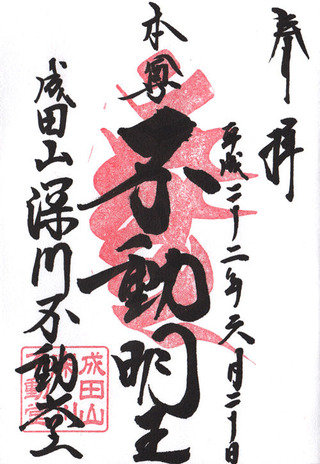 奉拝
平成二十二年六月二十日
本尊
不動明王
成田山深川不動堂
成田山